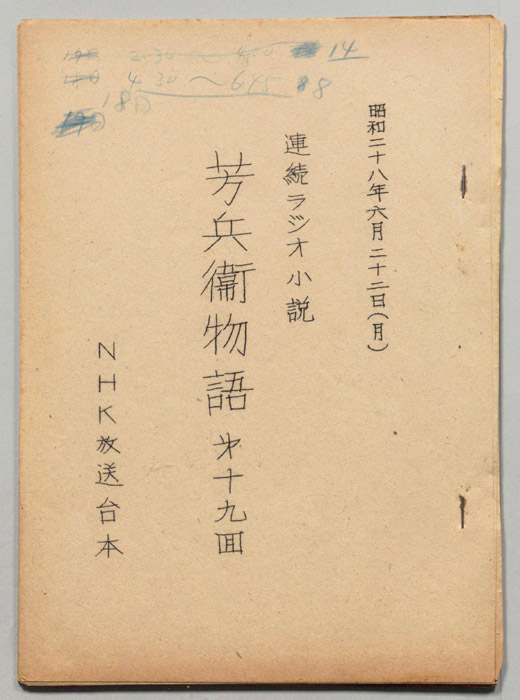 昭和二十八年六月二十二日(月)
連続ラジオ小説
芳兵衛物語 才十九回
NHK放送台本
2.30〜4.00 14
4.30〜6.45 88
18日